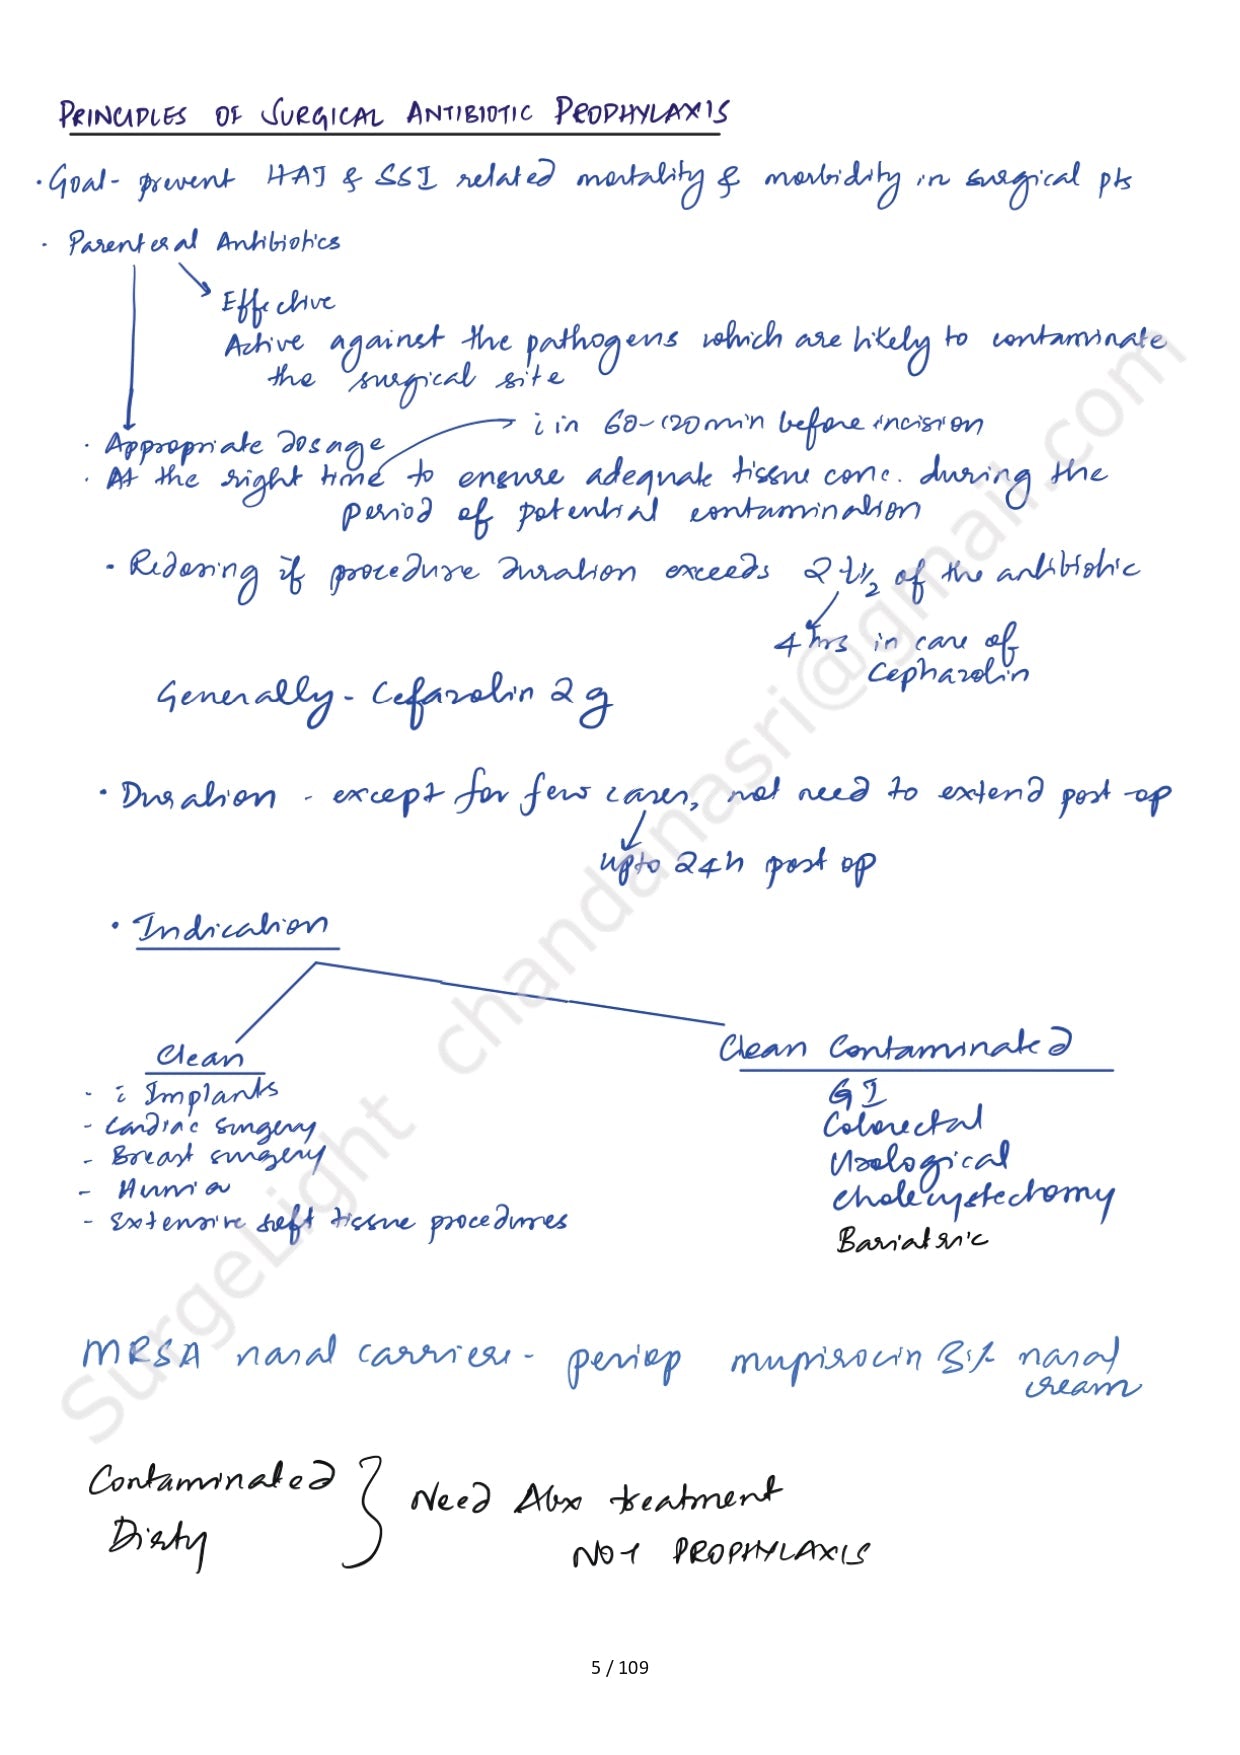 PRINCIPLES OF SURGICAL ANTIBIOTIC PROPHYLAXIS
· Goal - prevent HAI & SSI related mortality & morbidity in surgical pts
· Parenteral Antibiotics
Effective
Active against the pathogens which are likely to contaminate
the surgical site
i in 60-120min before incision
· Appropriate dosage
· At the right time to ensure adequate tissue conc. during the
period of potential contamination
· Redosing if procedure duration exceeds 2 t½ of the antibiotic
4 hrs in case of
Cephazolin
Generally - Cefazolin 2 g
· Duration - except for few cases, not need to extend post-op
upto 24h post op
· Indication
Clean
Clean Contaminated
- i Implants
- Cardiac surgery
- Breast surgery
- Hernia
- Extensive soft tissue procedures
GI
Colorectal
Urological
Cholecystectomy
Bariatric
MRSA nasal carriers - periop mupirocin % nasal
cream
Contaminated
Dirty
Need Abx treatment
NOT PROPHYLAXIS
SurgeLight chandanasri@gmail.com
5 / 109